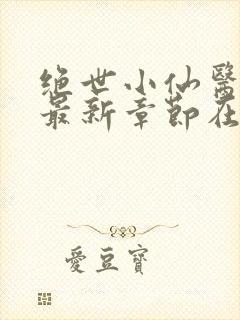 绝世小仙醫
最新章節在
愛豆寶